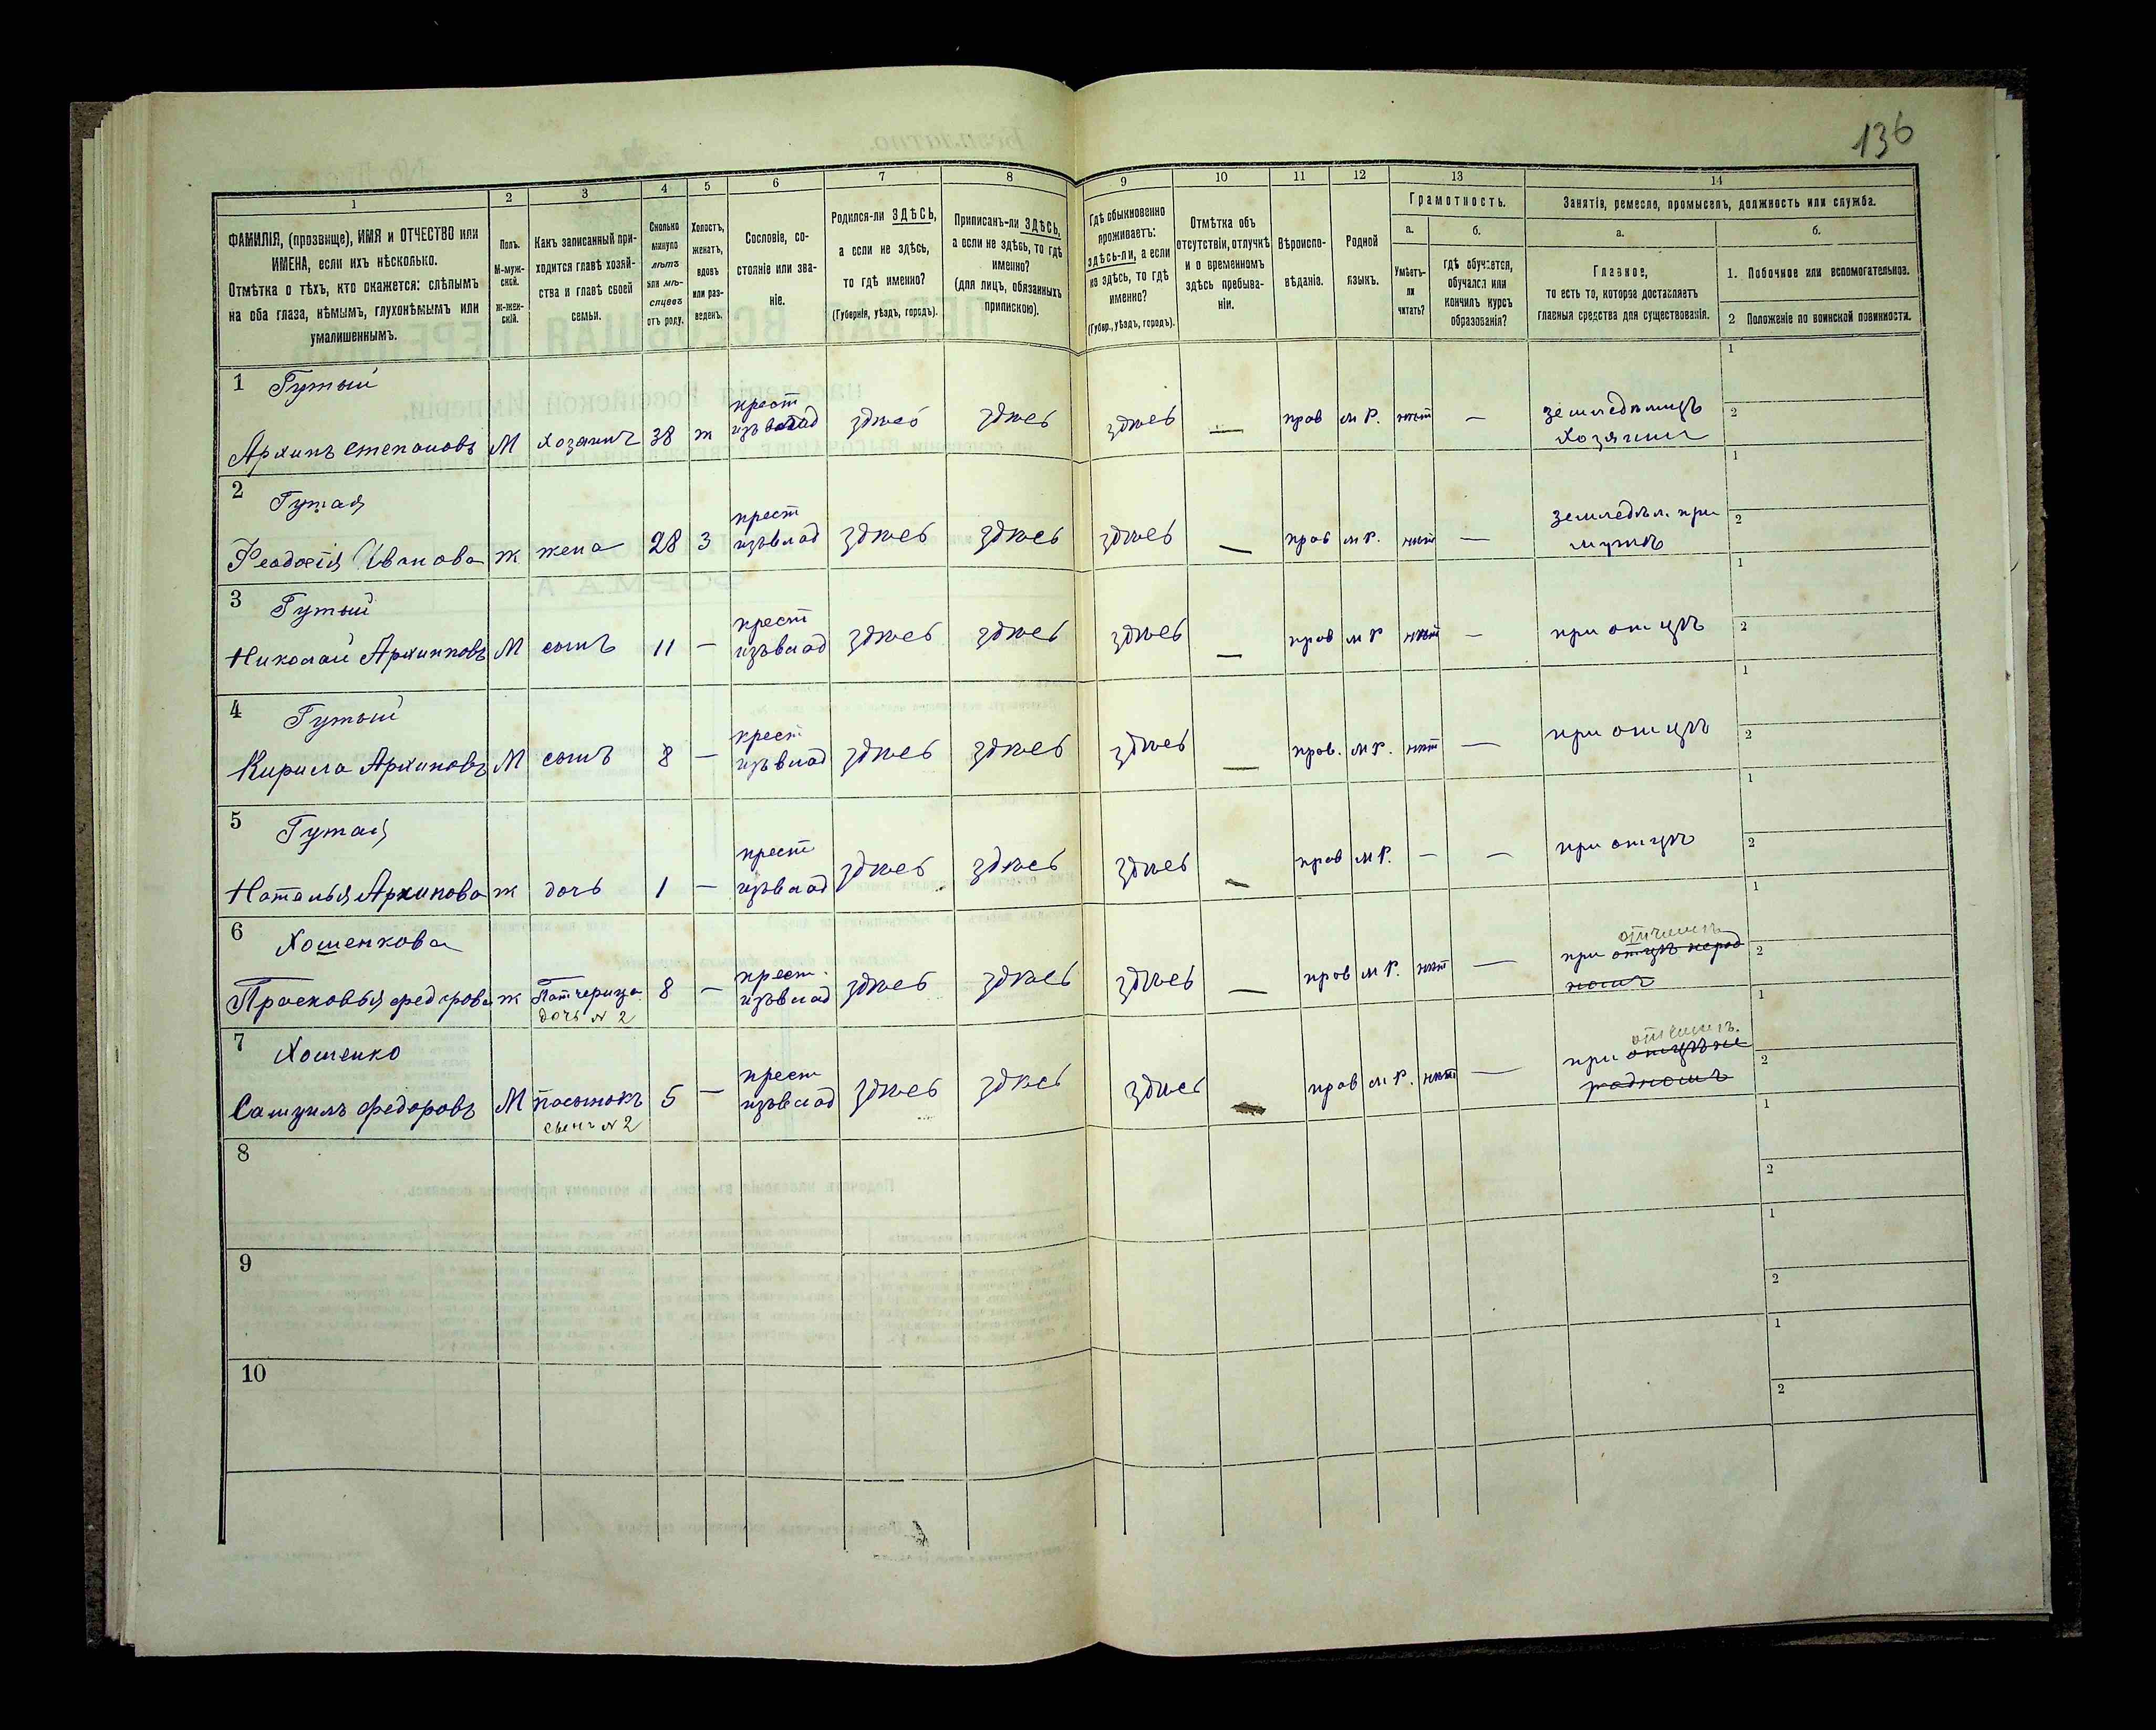 136
1
2
3
4
5
6
7
8
9
10
11
12
13
14
ФАМИЛІЯ, (прозвище), ИМЯ и ОТЧЕСТВО или
ИМЕНА, если ихъ нѣсколько.
Отмѣтка о тѣхъ, кто окажется: слѣпымъ
на оба глаза, нѣмымъ, глухонѣмымъ или
умалишеннымъ.
Полъ.
М-муж-
ской.
Ж-жен-
скій.
Какъ записанный при-
ходится главѣ хозяй-
ства и главѣ своей
семьи.
Сколько
минуло
лѣтъ
или мѣ-
сяцевъ
отъ роду.
Холостъ,
женатъ,
вдовъ
или раз-
веденъ.
Сословіе, со-
стояніе или зва-
ніе.
Родился-ли ЗДѢСЬ,
а если не здѣсь,
то гдѣ именно?
(Губернія, уѣздъ, городъ).
Приписанъ-ли ЗДѢСЬ,
а если не здѣсь, то гдѣ
именно?
(для лицъ, обязанныхъ
припискою).
Гдѣ обыкновенно
проживаетъ:
здѣсь-ли, а если
не здѣсь, то гдѣ
именно?
(Губер., уѣздъ, городъ).
Отмѣтка объ
отсутствіи, отлучкѣ
и о временномъ
здѣсь пребыва-
ніи.
Вѣроиспо-
вѣданіе.
Родной
языкъ.
Грамотность.
а.
Умѣетъ-
ли
читать?
б.
гдѣ обучается,
обучался или
кончилъ курсъ
образованія?
Занятіе, ремесло, промыселъ, должность или служба.
а.
Главное,
то есть то, которое доставляетъ
главныя средства для существованія.
б.
1. Побочное или вспомогательное.
2 Положеніе по воинской повинности.
1 Гутый
Архипъ Степановъ М хозяинъ 38 ж крест изъ влад здѣсь здѣсь здѣсь — прав м Р. нѣтъ — земледѣлецъ хозяинъ 1 2
2 Гутая
Феодосія Иванова ж жена 28 З крест изъ влад здѣсь здѣсь здѣсь — прав м Р. нѣт — земледѣл. при мужѣ 1 2
3 Гутый
Николай Архиповъ М сынъ 11 — крест изъ влад здѣсь здѣсь здѣсь — прав м Р нѣт — при отцѣ 1 2
4 Гутый
Кирила Архиповъ М сынъ 8 — крест изъ влад здѣсь здѣсь здѣсь — прав. м Р. нѣт — при отцѣ 1 2
5 Гутая
Наталья Архипова ж дочь 1 — крест изъ влад здѣсь здѣсь здѣсь — прав м Р. — — при отцѣ 1 2
6 Хошенкова
Прасковья Федорова ж Патчерица дочь № 2 8 — крест. изъ влад здѣсь здѣсь здѣсь — прав м Р. нѣт — при отчимѣ отцѣ нерод номъ 1 2
7 Хошенко
Самуилъ Федоровъ М пасынокъ сынъ № 2 5 — крест изъ влад здѣсь здѣсь здѣсь — прав м Р. нѣт — при отчимѣ. отцѣ не родномъ 1 2
8 1 2
9 1 2
10 1 2